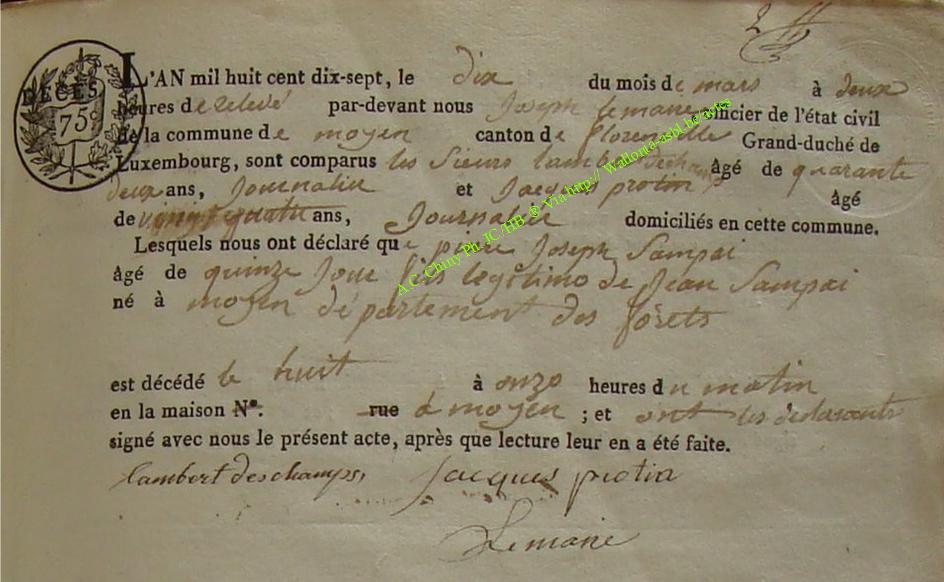 2
DÉCÈS
75 c
L'AN mil huit cent dix-sept, le dix du mois de mars à deux
heures de relevé par-devant nous Joseph Lemaire officier de l'état civil
de la commune de moyen canton de florenville Grand-duché de
Luxembourg, sont comparus les Sieurs lambert deschamps âgé de quarante
deux ans, Journalier et Jacques protin âgé
de vingt quatre ans, Journalier domiciliés en cette commune.
Lesquels nous ont déclaré que pierre Joseph Sampai
âgé de quinze Jour fils legitimo de Jean Sampai
né à moyen département des forets
est décédé le huit à onze heures du matin
en la maison N°. rue à moyen ; et ont les declarants
signé avec nous le présent acte, après que lecture leur en a été faite.
lambert deschamps, Jacques protin
Lemaire
A.C. Chiny Ph. JC/HB @ Via http:// Wallonia-asbl.be actes